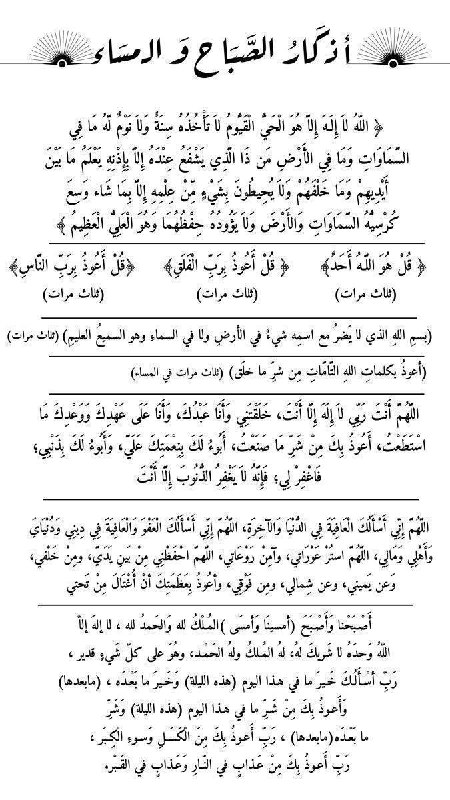 أذكَارُ الصَّبَاح وَ المسَاء
﴿ اللَّهُ لاَ إِلَـهَ إِلاَّ هُوَ الْحَيُّ الْقَيُّومُ لاَ تَأْخُذُهُ سِنَةٌ وَلاَ نَوْمٌ لَّهُ مَا فِي
السَّمَاوَاتِ وَمَا فِي الأَرْضِ مَن ذَا الَّذِي يَشْفَعُ عِنْدَهُ إِلاَّ بِإِذْنِهِ يَعْلَمُ مَا بَيْنَ
أَيْدِيهِمْ وَمَا خَلْفَهُمْ وَلاَ يُحِيطُونَ بِشَيْءٍ مِّنْ عِلْمِهِ إِلاَّ بِمَا شَاء وَسِعَ
كُرْسِيُّهُ السَّمَاوَاتِ وَالأَرْضَ وَلاَ يَؤُودُهُ حِفْظُهُمَا وَهُوَ الْعَلِيُّ الْعَظِيمُ ﴾
﴿ قُلْ هُوَ اللَّـهُ أَحَدٌ﴾ ﴿ قُلْ أَعُوذُ بِرَبِّ الْفَلَقِ﴾ ﴿قُلْ أَعُوذُ بِرَبِّ النَّاسِ﴾
(ثلاث مرات) (ثلاث مرات) (ثلاث مرات)
(بسمِ اللهِ الذي لا يَضرُ مع اسمِهِ شيءٌ في الأرضِ ولا في السماءِ وهو السميعُ العليمِ) (ثلاث مرات)
(أعوذُ بكلماتِ اللهِ التَّامَّاتِ مِن شرِّ ما خلَق) (ثلاث مرات في المساء)
اللَّهُمَّ أَنْتَ رَبِّي لاَ إِلَهَ إِلَّا أَنْتَ، خَلَقْتَنِي وَأَنَا عَبْدُكَ، وَأَنَا عَلَى عَهْدِكَ وَوَعْدِكَ مَا
اسْتَطَعْتُ، أَعُوذُ بِكَ مِنْ شَرِّ مَا صَنَعْتُ، أَبُوءُ لَكَ بِنِعْمَتِكَ عَلَيَّ، وَأَبُوءُ لَكَ بِذَنْبِي؛
فَاغْفِرْ لِي؛ فَإِنَّهُ لاَ يَغْفِرُ الذُّنُوبَ إِلَّا أَنْتَ
اللَّهُمَّ إِنِّي أَسْأَلُكَ الْعَافِيَةَ فِي الدُّنْيَا وَالآخِرَةِ، اللَّهُمَّ إِنِّي أَسْأَلُكَ الْعَفْوَ وَالْعَافِيَةَ فِي دِينِي وَدُنْيَايَ
وَأَهْلِي وَمَالِي، اللَّهُمَّ اسْتُرْ عَوْرَاتِي، وَآمِنْ رَوْعَاتِي، اللَّهمَّ احْفَظْنِي مِنْ بَينِ يَدَيَّ، ومِنْ خَلْفِي،
وَعن يَمينِي، وعن شِمالِي، ومِن فَوْقِي، وأعُوذُ بِعَظَمَتِكَ أنْ أُغْتَالَ مِنْ تَحتِي
أَصْبَحْنا وَأَصْبَحَ (أمسينا وأمسَى )المُـلْكُ لله وَالحَمدُ لله ، لا إلهَ إلاّ
اللّهُ وَحدَهُ لا شَريكَ لهُ، لهُ المُـلكُ ولهُ الحَمْـد، وهُوَ على كلّ شَيءٍ قدير ،
رَبِّ أسْـأَلُـكَ خَـيرَ ما في هـذا اليوم (هذه الليلة) وَخَـيرَ ما بَعْـدَه ، (مابعدها)
وَأَعـوذُ بِكَ مِنْ شَـرِّ ما في هـذا اليوم (هذه الليلة) وَشَرِّ
ما بَعْـدَه(مابعدها) ، رَبِّ أَعـوذُ بِكَ مِنَ الْكَسَـلِ وَسـوءِ الْكِـبَر ،
رَبِّ أَعـوذُ بِكَ مِنْ عَـذابٍ في النّـارِ وَعَـذابٍ في القَـبْر.